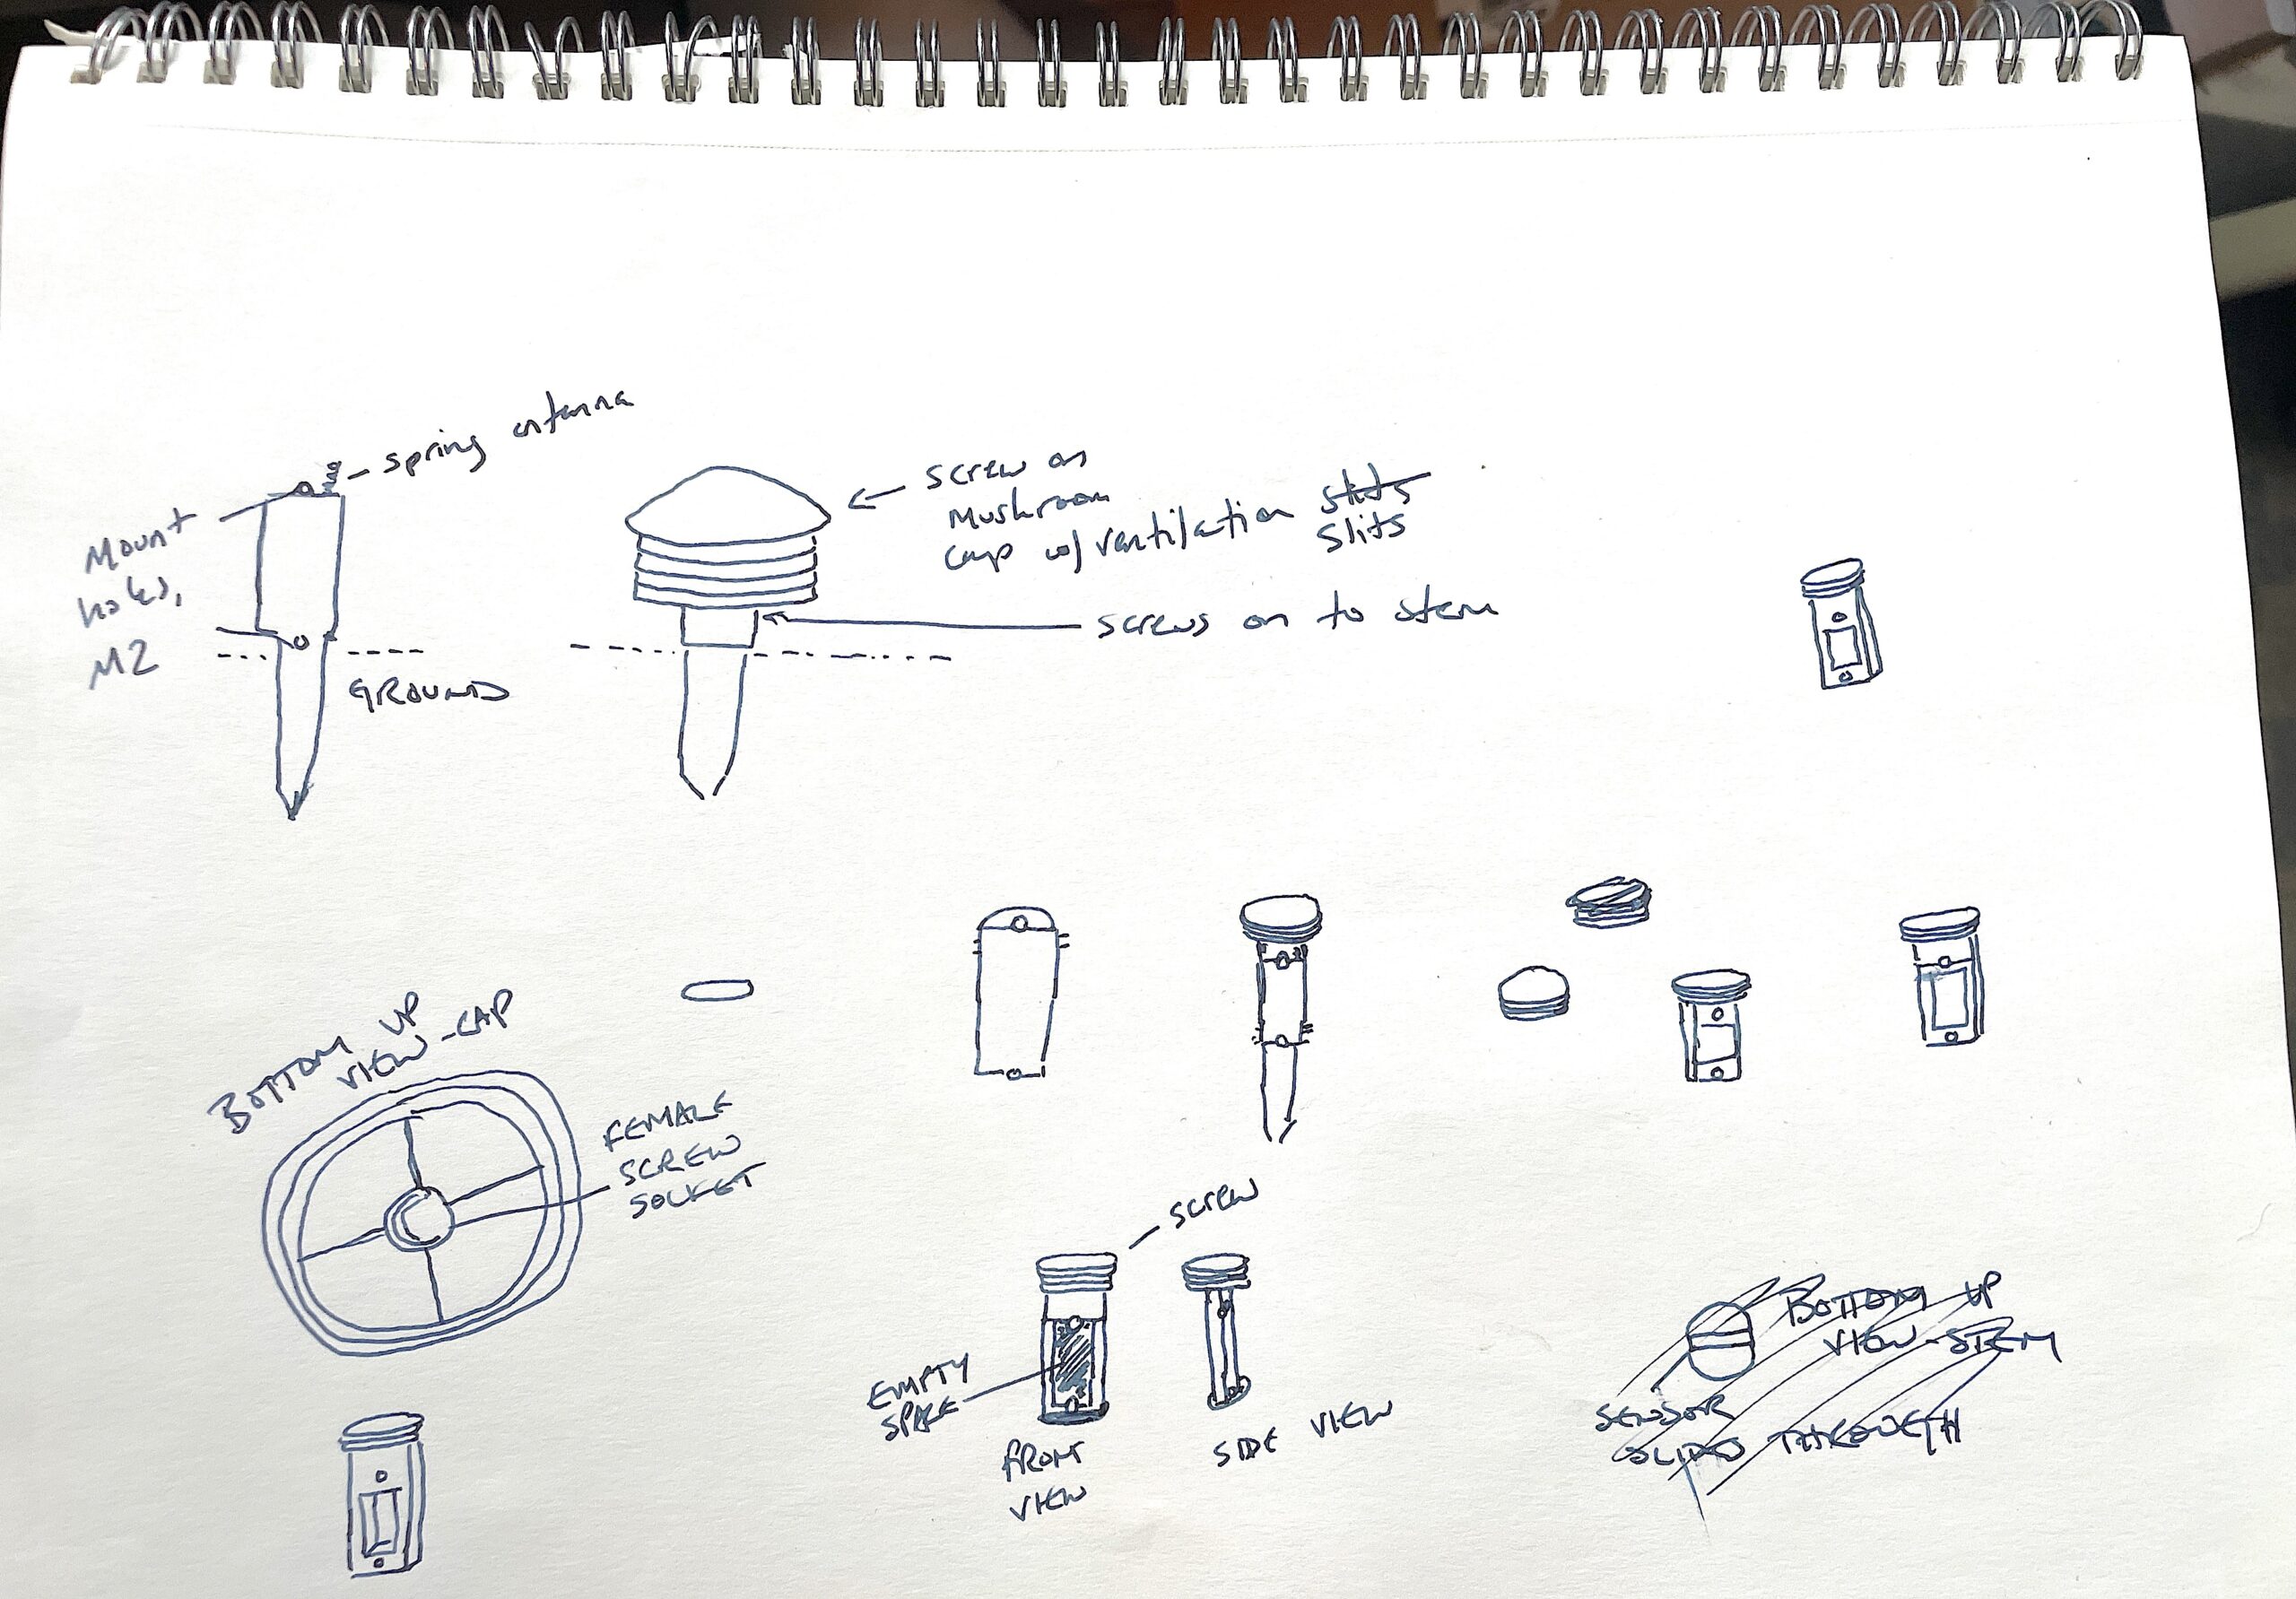 spring antenna
Mount
holes,
M2
GROUND
screw on
Mushroom
cap w/ ventilation slits
slits
screws on to stem
BOTTOM UP
VIEW-CAP
FEMALE
SCREW
SOCKET
SCREW
EMPTY
SPACE
FRONT
VIEW
SIDE VIEW
BOTTOM UP
VIEW-STEM
SENSOR
SLIDES THROUGH